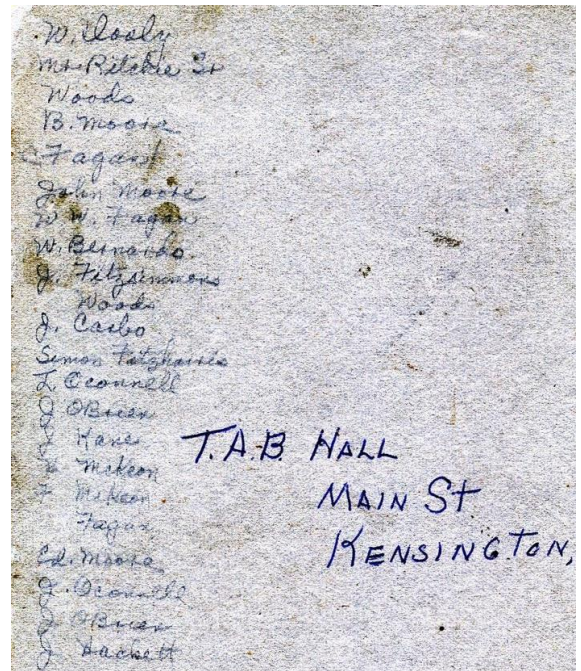 W. Dooly
Mr. Ritchie Sr
Woods
B. Moore
Fagan
John Moore
W. W. Fagan
W. Bernardo.
J. Fitzsimmons
Woods
J. Casbo
Simon Fitzharris
L Oconnell
J OBrien
J Kane
McKeon
F McKeon
Fagan
Ed. Moore
J. Oconnell
J OBrien
J Hackett
T.A.B. HALL
MAIN St
KENSINGTON,